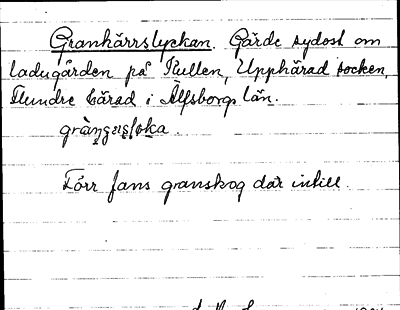 Granhärrslyckan. Gärde sydost om
ladugården på Kullen, Upphärad socken,
Flundre härad i Älfsborgs län.
Förr fans granskog där intill.